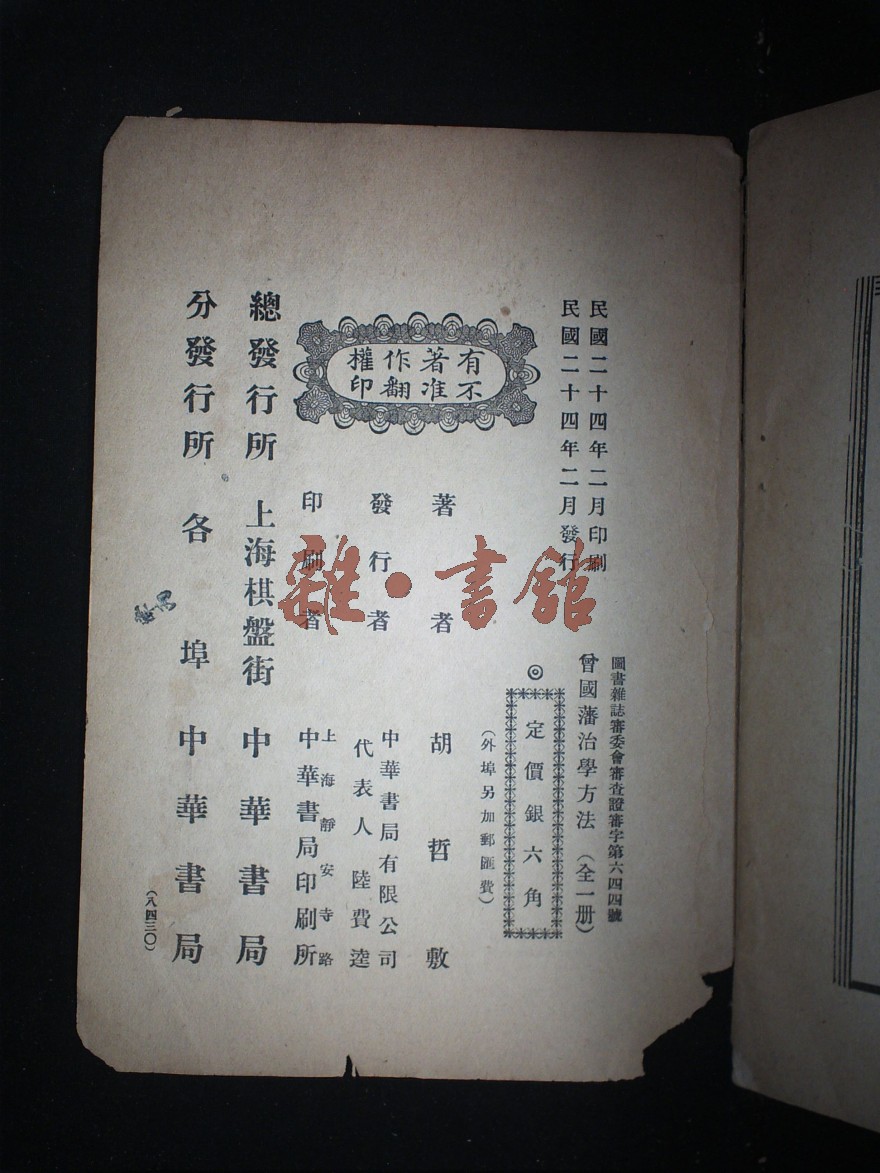 民國二十四年二月印刷
民國二十四年二月發行
圖書雜誌審委會審查證審字第六四四號
曾國藩治學方法（全一册）
◎定價銀六角
（外埠另加郵匯費）
有著作權
不准翻印
著者 胡哲敷
發行者 中華書局有限公司
代表人 陸費逵
印刷者 上海靜安寺路
中華書局印刷所
總發行所 上海棋盤街 中華書局
分發行所 各埠 中華書局
（八四三〇）
雜·書館